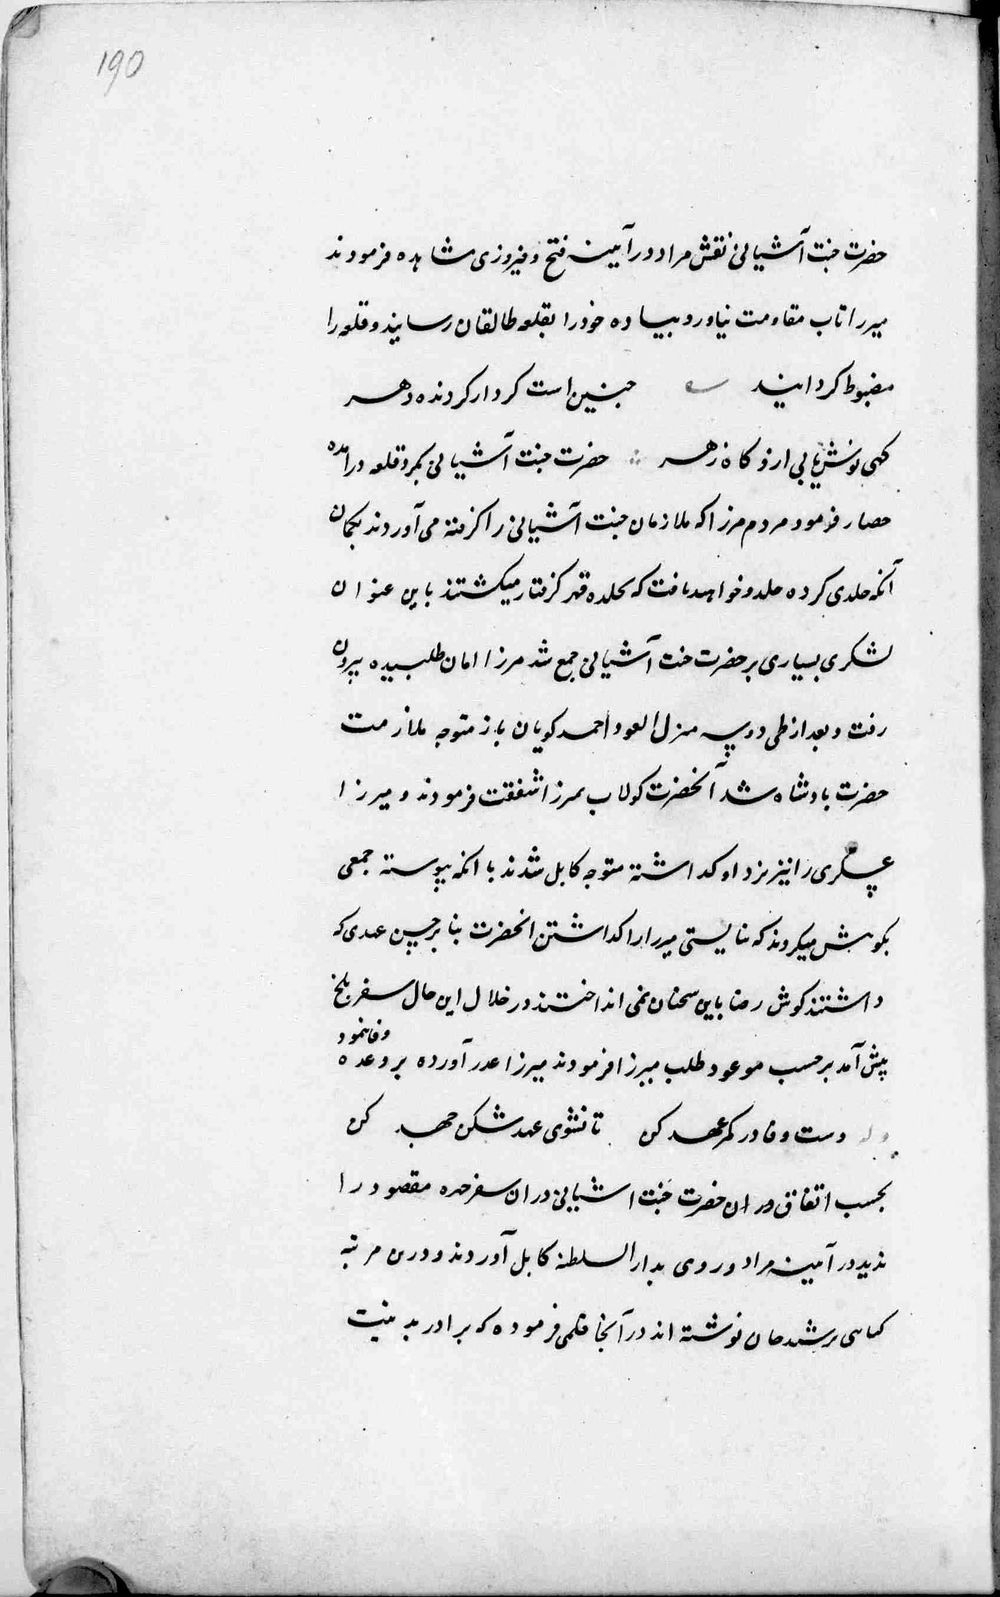 190
حضرت جنت آشیانی نقش مراد در آیینه فتح و فیروزی مشاهده فرمودند
میررا تاب مقاومت نیاورد و پیاده خود را بقلعه طالقان رسانید و قلعه را
مضبوط کردانید چنین است کردار کردنده دهر
کهی نوش یابی ازو کاه زهر حضرت جنت آشیانی بکرد قلعه درآمده
حصار فرمود مردم مرزا که ملازمان جنت آشیانی را کرفته می آوردند بکمان
آنکه جلدی کرده جلدو خواهند یافت که بجلده قهر کرفتار میکشتند باین عنوان
لشکری بسیاری بر حضرت جنت آشیانی جمع شد مرزا امان طلبیده بیرون
رفت و بعد از طی دو سه منزل العود احمد کویان باز متوجه ملازمت
حضرت بادشاه شد آنحضرت کولاب بمرزا شفقت فرمودند و میرزا
عسکری را نیز نزد او کداشته متوجه کابل شدند با آنکه پیوسته جمعی
بکوشش میکردند که بنایستی میررا را کداشتن آنحضرت بنا بر چنین عهدی که
داشتند کوش رضا باین سخنان نمی انداختند در خلال این حال سفر بلخ
پیش آمد برحسب موعود طلب میرزا فرمودند میرزا عدر آورده بروعده وفا ننمود
دست وفا در کمر عهد کن تا نشوی عهد شکن جهد کن
بحسب اتفاق دران حضرت جنت اشیانی دران سفر چهره مقصود را
ندید در آمینه مراد و روی بدار السلطنه کابل آوردند و درین مرتبه
کتابی برشید خان نوشته اند در آنجا قلمی فرموده که برادر بد نیت